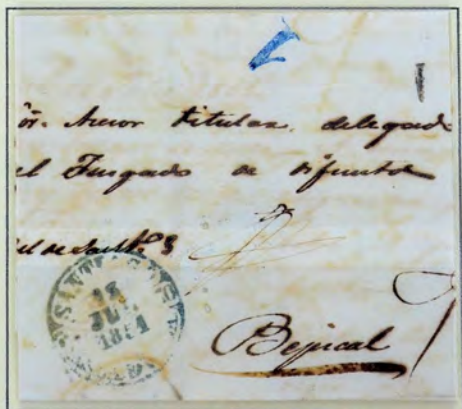 ör. Asesor titular, delegado
el Jusgado de difuntos
SANTIAGO
13
JUL
1851
Bejucal